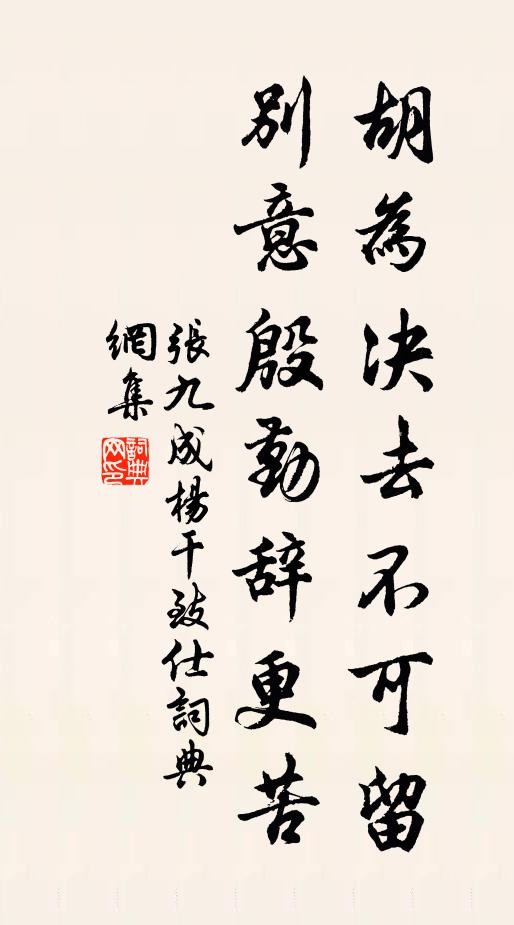 胡為决去不可留
別意殷勤辞更苦
張九成楊干致仕詞典
網集
詞典
网印